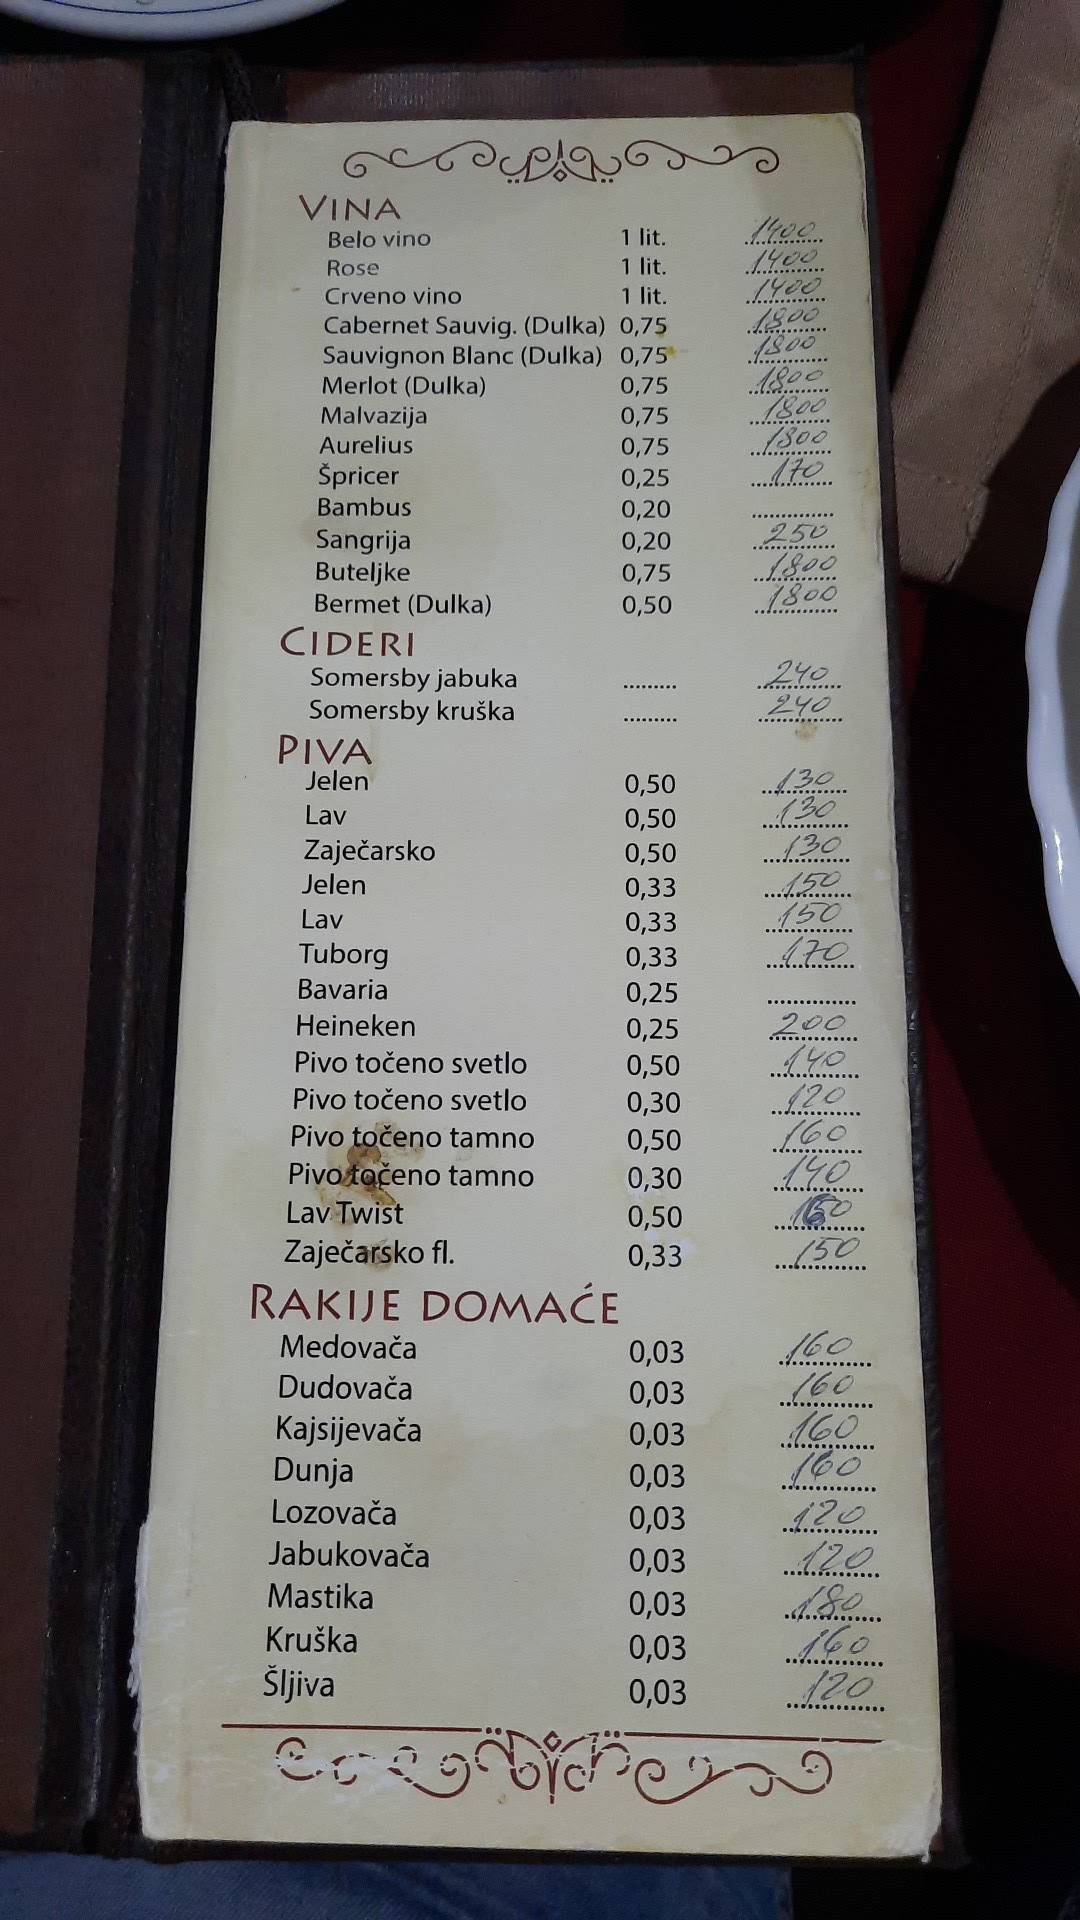 VINA
Belo vino 1 lit. 1400
Rose 1 lit. 1400
Crveno vino 1 lit. 1400
Cabernet Sauvig. (Dulka) 0,75 1800
Sauvignon Blanc (Dulka) 0,75 1800
Merlot (Dulka) 0,75 1800
Malvazija 0,75 1800
Aurelius 0,75 1800
Špricer 0,25 170
Bambus 0,20 ..............
Sangrija 0,20 250
Buteljke 0,75 1800
Bermet (Dulka) 0,50 1800
CIDERI
Somersby jabuka ......... 240
Somersby kruška ......... 240
PIVA
Jelen 0,50 130
Lav 0,50 130
Zaječarsko 0,50 130
Jelen 0,33 150
Lav 0,33 150
Tuborg 0,33 170
Bavaria 0,25 ..............
Heineken 0,25 200
Pivo točeno svetlo 0,50 140
Pivo točeno svetlo 0,30 120
Pivo točeno tamno 0,50 160
Pivo točeno tamno 0,30 140
Lav Twist 0,50 160
Zaječarsko fl. 0,33 150
RAKIJE DOMAĆE
Medovača 0,03 160
Dudovača 0,03 160
Kajsijevača 0,03 160
Dunja 0,03 160
Lozovača 0,03 120
Jabukovača 0,03 120
Mastika 0,03 180
Kruška 0,03 160
Šljiva 0,03 120